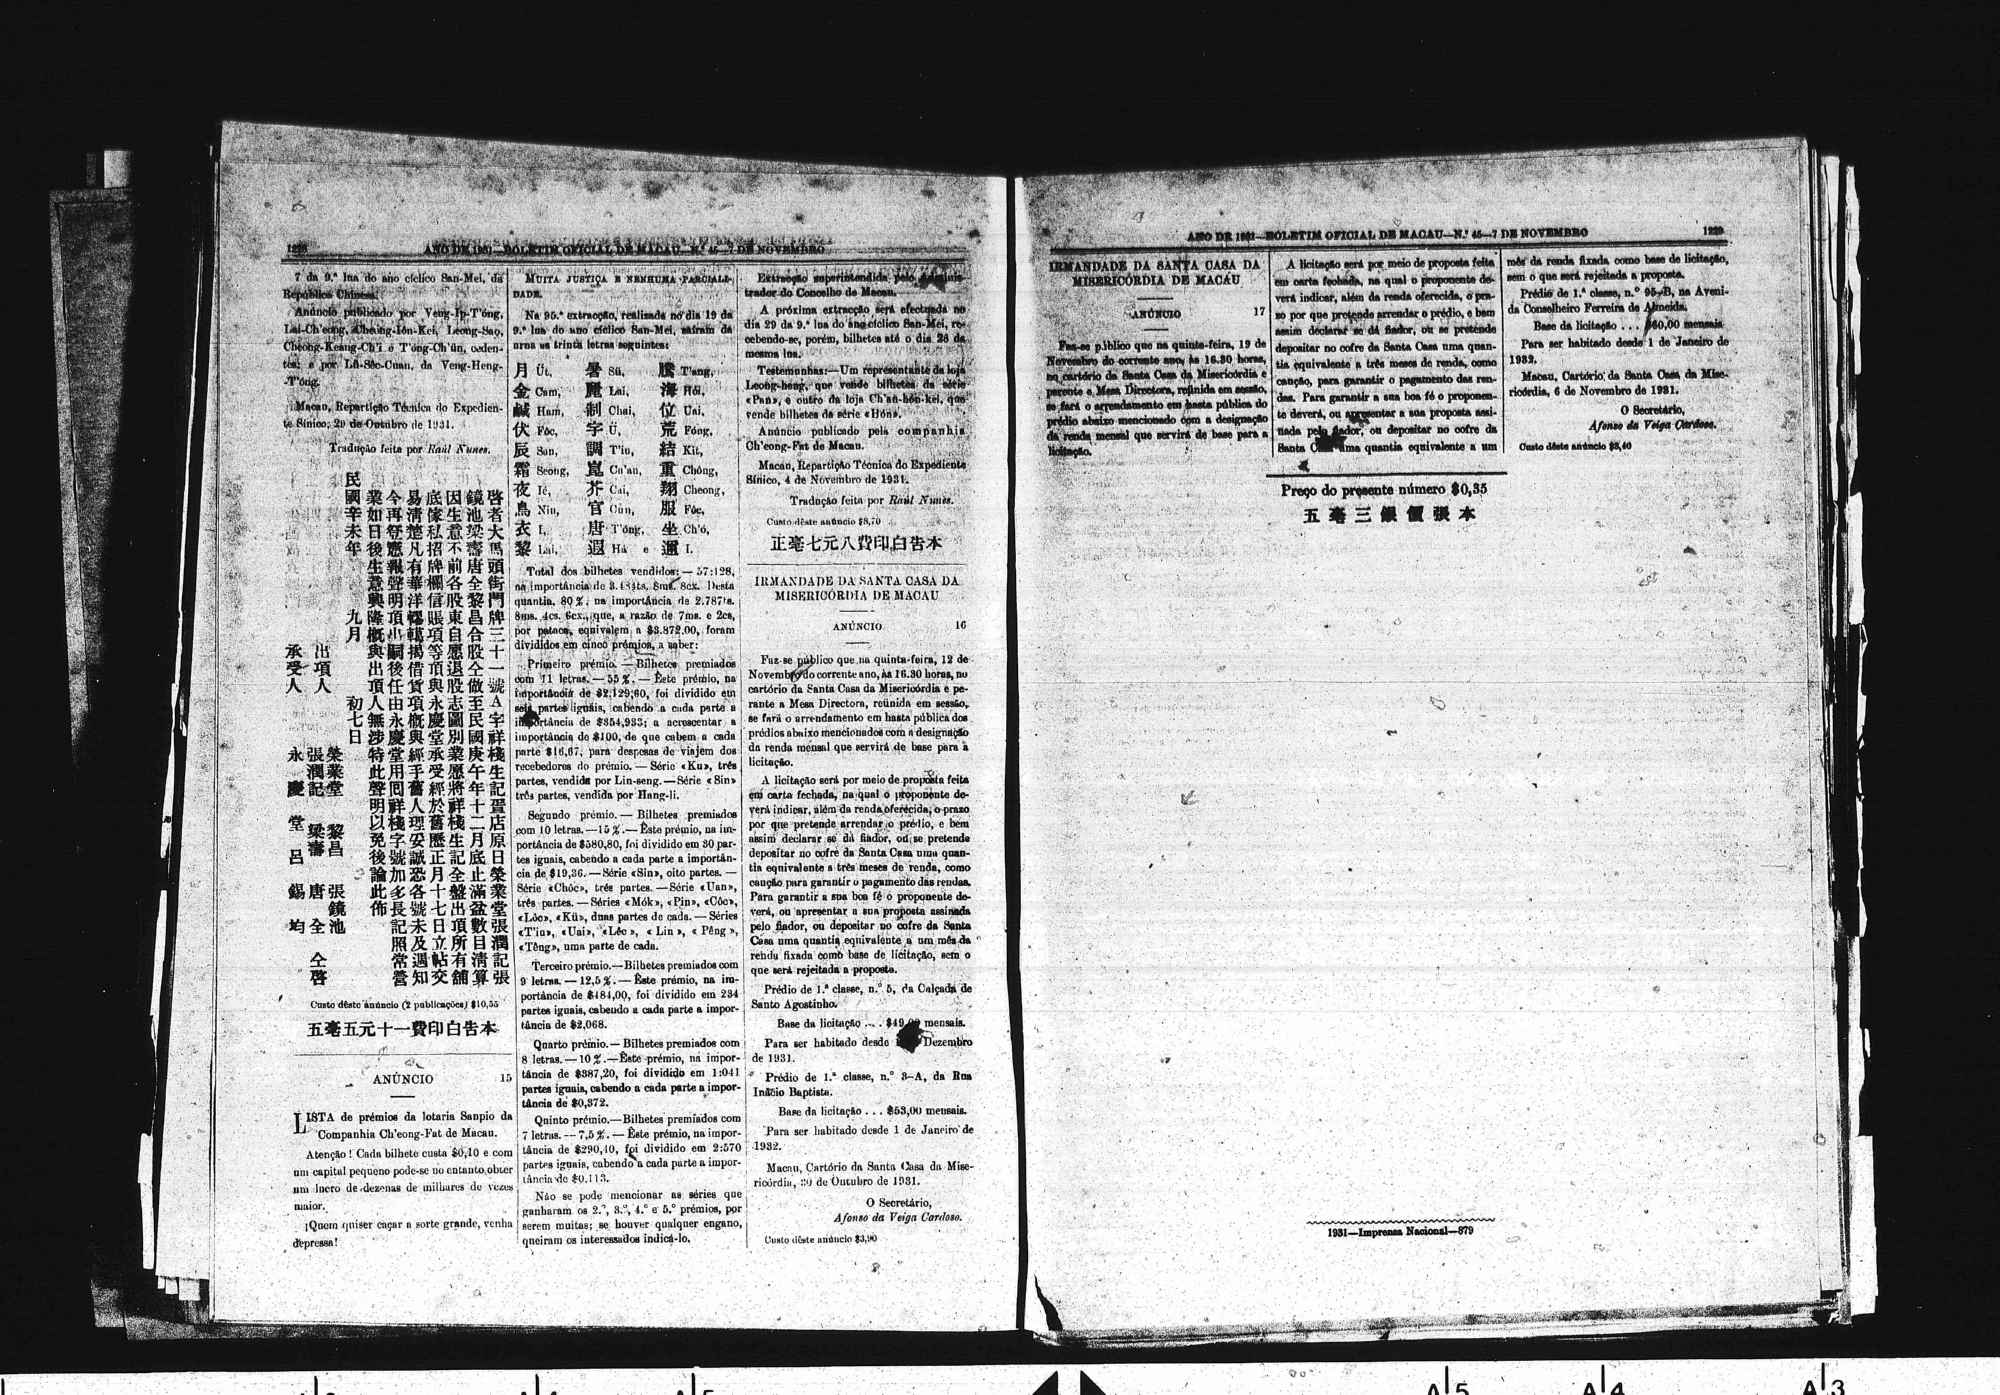 1228 ANO DE 1931—BOLETIM OFICIAL DE MACAU—N.º 45—7 DE NOVEMBRO
7 da 9.ª lua do ano cíclico San-Mei, da
República Chinesa.
Anúncio publicado por Veng-Ip-T'óng,
Lai-Ch'eong, Cheong-Iôn-Kei, Leong-Sao,
Cheong-Keang-Ch'i e T'óng-Ch'ün, ceden-
tes; e por Lü-Sêc-Cuan, da Veng-Heng-
-T'óng.
Macau, Repartição Técnica do Expedien-
te Sínico, 29 de Outubro de 1931.
Tradução feita por Raúl Nunes.
啓者大馬頭街門牌三十一號A字祥棧生記疍店原日榮業堂張潤記張
鏡池梁壽唐全黎昌合股仝做至民國庚午年十二月底止滿盆數目清算
因生意不前各股東自愿退股志圖別業愿將祥棧生記全盤出頂所有舖
底傢私招牌欄信賬項等頂與永慶堂承受經於舊歷正月十七日立帖交
易清楚凡有華洋轇轕揭借貨項概與經手舊人理妥誠恐各號未及週知
今再登憲報聲明頂出嗣後任由永慶堂用囘祥棧字號加多長記照常營
業如日後生意興隆概與出頂人無涉特此聲明以免後論此佈
民國辛未年 九月 初七日
出項人 榮業堂 黎昌 張鏡池
張潤記 梁壽 唐全 仝啓
承受人 永慶堂呂錫均
Custo dêste anúncio (2 publicações) $10,55
五毫五元十一費印白告本
ANÚNCIO 15
LISTA de prémios da lotaria Sanpio da
Companhia Ch'eong-Fat de Macau.
Atenção! Cada bilhete custa $0,10 e com
um capital pequeno pode-se no entanto obter
um lucro de dezenas de milhares de vezes
maior.
¡Quem quiser caçar a sorte grande, venha
depressa!
MUITA JUSTIÇA E NENHUMA PARCIALI-
DADE.
Na 95.ª extracção, realizada no dia 19 da
9.ª lua do ano cíclico San-Mei, saíram da
urna as trinta letras seguintes:
月 Üt, 暑 Sü, 騰 T'ang,
金 Cam, 麗 Lai, 海 Hói,
鹹 Ham, 制 Chai, 位 Uai,
伏 Fôc, 字 Ü, 荒 Fóng,
辰 San, 調 T'iu, 結 Kit,
霜 Seong, 崑 Cu'an, 重 Chông,
夜 Ié, 芥 Cai, 翔 Cheong,
鳥 Niu, 官 Cün, 服 Fôc,
衣 I, 唐 T'óng, 坐 Ch'ó,
黎 Lai, 遐 Há e 邇 I.
Total dos bilhetes vendidos: — 57:128,
na importância de 3.484ts. 8ms. 8cx. Desta
quantia, 80%, na importância de 2.787ts.
8ms. 4cs. 6cx., que, a razão de 7ms. e 2cs,
por pataca, equivalem a $3.872,00, foram
divididos em cinco prémios, a saber:
Primeiro prémio. — Bilhetes premiados
com 11 letras. — 55 %. — Êste prémio, na
importância de $2,129,60, foi dividido em
seis partes iguais, cabendo a cada parte a
importância de $354,933; a acrescentar a
importância de $100, de que cabem a cada
parte $16,67, para despesas de viajem dos
recebedores do prémio. — Série «Ku», três
partes, vendida por Lin-seng. — Série «Sin»
três partes, vendida por Hang-li.
Segundo prémio. — Bilhetes premiados
com 10 letras. — 15 %. — Êste prémio, na im-
portância de $580,80, foi dividido em 30 par-
tes iguais, cabendo a cada parte a importân-
cia de $19,36. — Série «Sin», oito partes. —
Série «Chôc», três partes. — Série «Uan»,
três partes. — Séries «Mók», «Pin», «Côc»,
«Lôc», «Kü», duas partes de cada. — Séries
«T'iu», «Uai», «Lêc», «Lin», «Pêng»,
«Têng», uma parte de cada.
Terceiro prémio. — Bilhetes premiados com
9 letras. — 12,5 %. — Êste prémio, na im-
portância de $484,00, foi dividido em 234
partes iguais, cabendo a cada parte a impor-
tância de $2,068.
Quarto prémio. — Bilhetes premiados com
8 letras. — 10 %. — Êste prémio, na impor-
tância de $387,20, foi dividido em 1:041
partes iguais, cabendo a cada parte a impor-
tância de $0,372.
Quinto prémio. — Bilhetes premiados com
7 letras. — 7,5 %. — Êste prémio, na impor-
tância de $290,40, foi dividido em 2:570
partes iguais, cabendo a cada parte a impor-
tância de $0,113.
Não se pode mencionar as séries que
ganharam os 2.º, 3.º, 4.º e 5.º prémios, por
serem muitas; se houver qualquer engano,
queiram os interessados indicá-lo.
Extracção superintendida pelo Adminis-
trador do Concelho de Macau.
A próxima extracção será efectuada no
dia 29 da 9.ª lua do ano cíclico San-Mei, re-
cebendo-se, porém, bilhetes até o dia 28 da
mesma lua.
Testemunhas:—Um representante da loja
Leong-heng, que vende bilhetes da série
«Pan», e outro da loja Ch'an-hôn-kei, que
vende bilhetes da série «Hón».
Anúncio publicado pela companhia
Ch'eong-Fat de Macau.
Macau, Repartição Técnica do Expediente
Sínico, 4 de Novembro de 1931.
Tradução feita por Raúl Nunes.
Custo dêste anúncio $8,70
正毫七元八費印白告本
IRMANDADE DA SANTA CASA DA
MISERICÓRDIA DE MACAU
ANÚNCIO 16
Faz-se público que na quinta-feira, 12 de
Novembro do corrente ano, às 16.30 horas, no
cartório da Santa Casa da Misericórdia e pe-
rante a Mesa Directora, reünida em sessão,
se fará o arrendamento em hasta pública dos
prédios abaixo mencionados com a designação
da renda mensal que servirá de base para a
licitação.
A licitação será por meio de proposta feita
em carta fechada, na qual o proponente de-
verá indicar, além da renda oferecida, o prazo
por que pretende arrendar o prédio, e bem
assim declarar se dá fiador, ou se pretende
depositar no cofre da Santa Casa uma quan-
tia equivalente a três meses de renda, como
caução para garantir o pagamento das rendas.
Para garantir a sua boa fé o proponente de-
verá, ou apresentar a sua proposta assinada
pelo fiador, ou depositar no cofre da Santa
Casa uma quantia equivalente a um mês da
renda fixada como base de licitação, sem o
que será rejeitada a proposta.
Prédio de 1.ª classe, n.º 5, da Calçada de
Santo Agostinho.
Base da licitação ... $49,00 mensais.
Para ser habitado desde Dezembro
de 1931.
Prédio de 1.ª classe, n.º 3-A, da Rua
Inácio Baptista.
Base da licitação ... $53,00 mensais.
Para ser habitado desde 1 de Janeiro de
1932.
Macau, Cartório da Santa Casa da Mise-
ricórdia, 30 de Outubro de 1931.
O Secretário,
Afonso da Veiga Cardoso.
Custo dêste anúncio $3,90
ANO DE 1931—BOLETIM OFICIAL DE MACAU—N.º 45—7 DE NOVEMBRO 1229
IRMANDADE DA SANTA CASA DA
MISERICÓRDIA DE MACAU
ANÚNCIO 17
Faz-se público que na quinta-feira, 19 de
Novembro do corrente ano, às 16.30 horas,
no cartório da Santa Casa da Misericórdia e
perante a Mesa Directora, reünida em sessão,
se fará o arrendamento em hasta pública do
prédio abaixo mencionado com a designação
da renda mensal que servirá de base para a
licitação.
A licitação será por meio de proposta feita
em carta fechada, na qual o proponente de-
verá indicar, além da renda oferecida, o pra-
zo por que pretende arrendar o prédio, e bem
assim declarar se dá fiador, ou se pretende
depositar no cofre da Santa Casa uma quan-
tia equivalente a três meses de renda, como
caução, para garantir o pagamento das ren-
das. Para garantir a sua boa fé o proponen-
te deverá, ou apresentar a sua proposta assi-
nada pelo fiador, ou depositar no cofre da
Santa Casa uma quantia equivalente a um
mês da renda fixada como base de licitação,
sem o que será rejeitada a proposta.
Prédio de 1.ª classe, n.º 95-B, na Aveni-
da Conselheiro Ferreira de Almeida.
Base da licitação ... $60,00 mensais
Para ser habitado desde 1 de Janeiro de
1932.
Macau, Cartório da Santa Casa da Mise-
ricórdia, 6 de Novembro de 1931.
O Secretário,
Afonso da Veiga Cardoso.
Custo dêste anúncio $3,40
Preço do presente número $0,35
五毫三銀價張本
1931—Imprensa Nacional—879
A 5
A 5
A 4
A 3